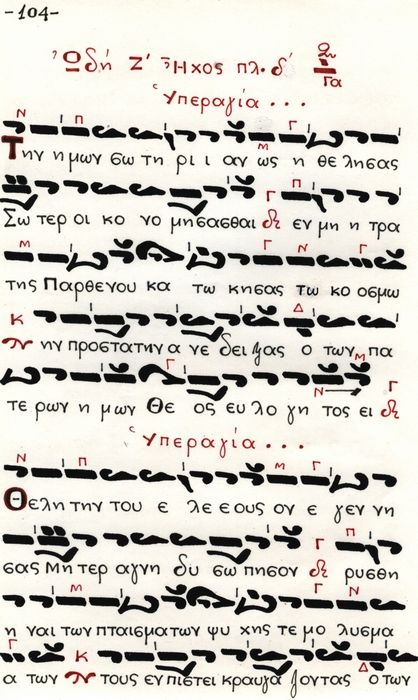 -104-
Ὠδή Ζ′ Ἦχος πλ. δ′ Γα
Ὑπεραγία...
Την ημων σω τη ρι ι αν ως η θε λησας
Σω τερ οι κο νο μησασθαι εν μη η τρα
της Παρθενου κα τω κησας τω κο σμω
ην προστατην α νε δει ξας ο των πα
τε ρων η μων Θε ος ευ λο γη τος ει
Ὑπεραγία...
Θελη την του ε λε ε ους ον ε γεν νη
σας Μη τερ αγνη δυ σω πησον ρυσθη
η ναι των πταισματων ψυ χης τε μο λυσμα
α των τους εν πιστει κραυγα ζοντας ο των